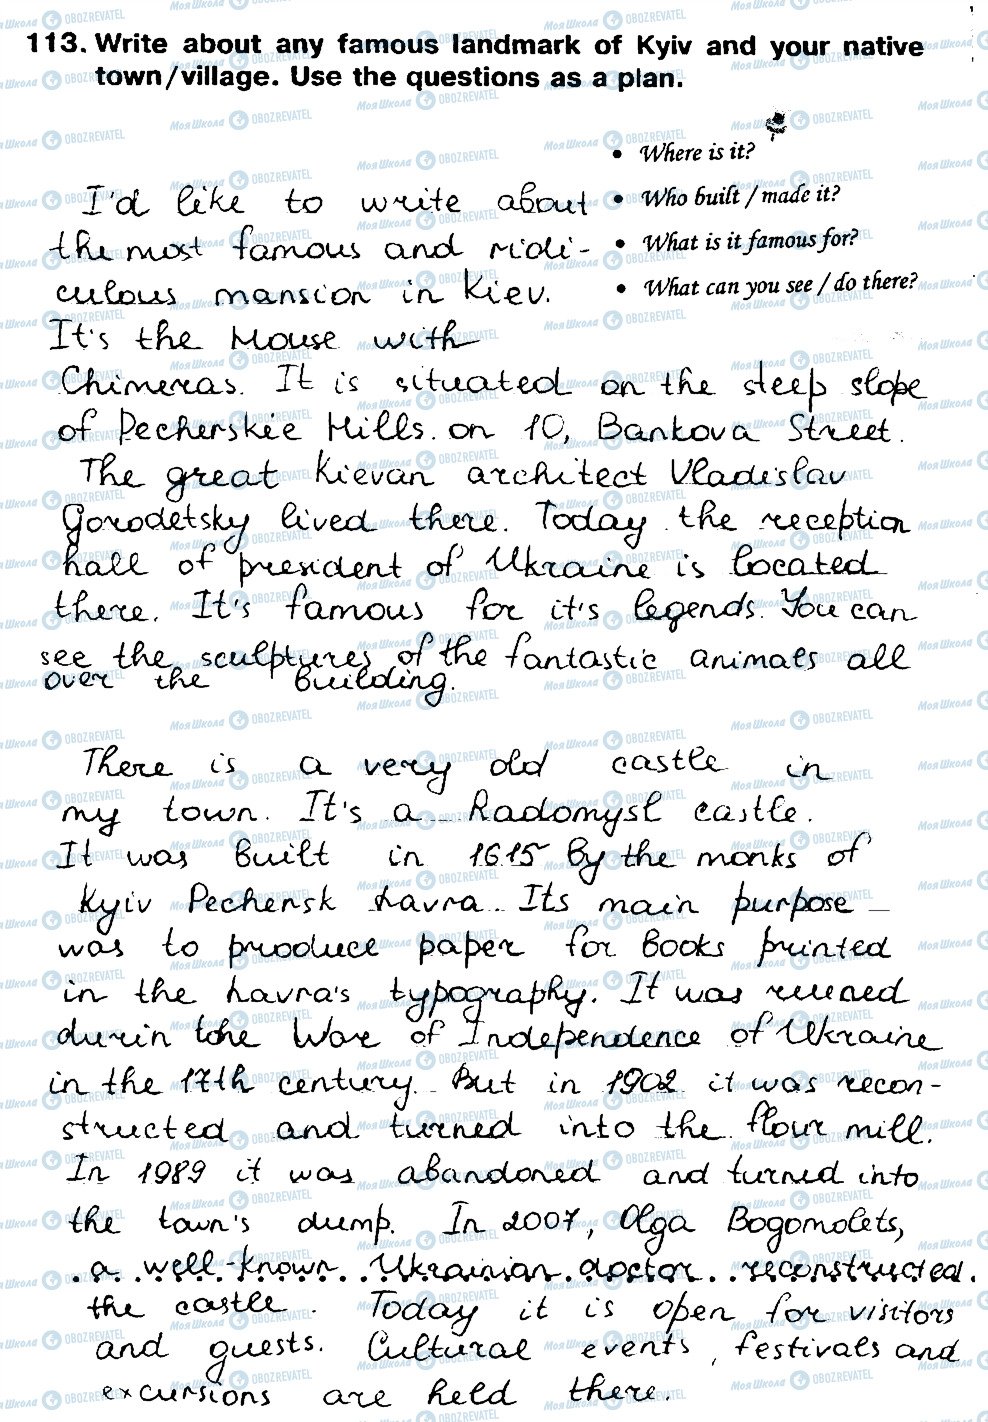 113. Write about any famous landmark of Kyiv and your native
town/village. Use the questions as a plan.
• Where is it?
• Who built / made it?
• What is it famous for?
• What can you see / do there?
I'd like to write about
the most famous and ridi-
culous mansion in Kiev.
It's the House with
Chimeras. It is situated on the steep slope
of Pecherskie Hills. on 10, Bankova Street.
The great Kievan architect Vladislav
Gorodetsky lived there. Today the reception
hall of president of Ukraine is located
there. It's famous for it's legends. You can
see the sculptures of the fantastic animals all
over the building.
There is a very old castle in
my town. It's a Radomysl castle.
It was built in 1615 by the monks of
Kyiv Pechersk Lavra. Its main purpose
was to produce paper for books printed
in the Lavra's typography. It was ruined
durin the War of Independence of Ukraine
in the 17th century. But in 1902 it was recon-
structed and turned into the flour mill.
In 1989 it was abandoned and turned into
the town's dump. In 2007, Olga Bogomolets,
a well-known Ukrainian doctor reconstructed
the castle. Today it is open for visitors
and guests. Cultural events, festivals and
excursions are held there.
Моя Школа OBOZREVATEL